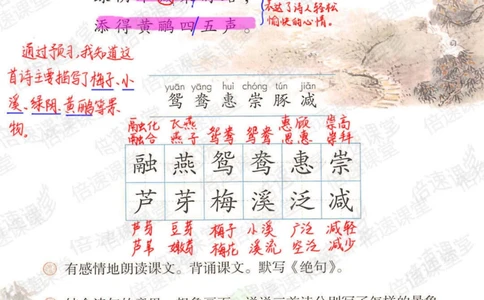 达了诗人轻松
愉快的心情。
添得黄鹂四五声。
通过预习,我知道这
首诗主要描写了梅子、小
溪、绿阴、黄鹂等景
物。
yuān yāng huì chóng tún jiǎn
鸳鸯惠崇豚减
融化 飞燕 惠顾 崇高
融合 燕子 鸳鸯 鸳鸯 惠惠 崇拜
融燕鸳鸯惠崇
芦芽梅溪泛减
芦笋 豆芽 梅子 小溪 广泛 减轻
芦苇 嫩芽 梅花 溪流 空泛 减少
有感情地朗读课文。背诵课文。默写《绝句》。